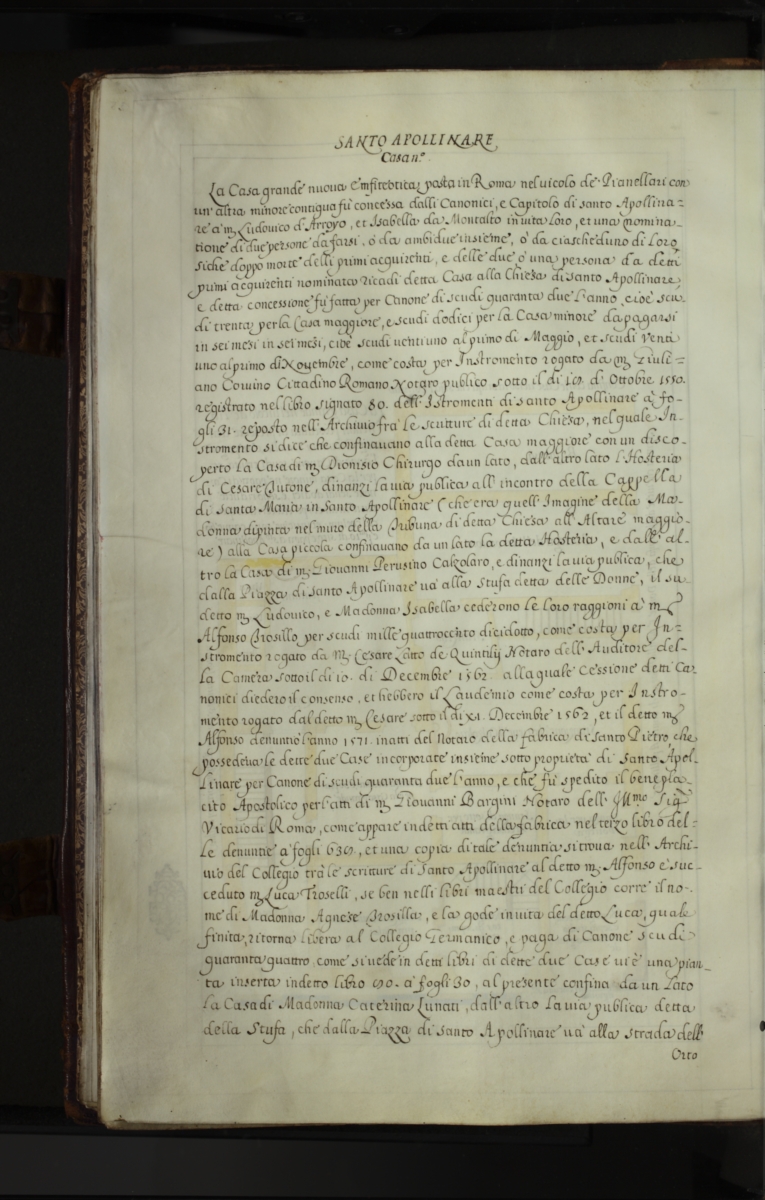 SANTO APOLLINARE
Casa nº.
La Casa grande nuova Emfiteotica posta in Roma nel vicolo de Pianellari con
un' altra minore contigua fù concessa dalli Canonici, e Capitolo di santo Apollina=
re à mʳ Ludovico d'Arroyo, et Isabella da Montalto in vita loro, et una nomina-
tione di due persone da farsi, ò da ambidue insieme, ò da ciascheduno di Loro,
siche doppo morte delli primi acquirenti, e delle due ò una persona da detti
primi acquirenti nominata ricadi detta Casa alla Chiesa di santo Apollinare,
e detta concessione fù fatta per Canone di scudi quaranta due l'anno, cioè scu-
di trenta per la Casa maggiore, e scudi dodici per la Casa minore da pagarsi
in sei mesi in sei mesi, cioè scudi venti uno al primo di Maggio, et scudi venti
uno al primo di Novembre, come costa per Instromento rogato da mʳ Giuli=
ano Corvino Cittadino Romano Notaro publico sotto il di 19. d' Ottobre 1550.
registrato nel libro signato 80. dell' Istromenti di santo Apollinare à fo-
gli 31. reposto nell' Archivio frà le scritture di detta Chiesa, nel quale In-
stromento si dice che confinavano alla detta Casa maggiore con un disco-
perto la Casa di mʳ Dionisio Chirurgo da un lato, dall' altro lato l'Hosteria
di Cesare, dinanzi la via publica all' incontro della Cappella
di Santa Maria in Santo Apollinare (che era quell' Imagine della Ma-
donna dipinta nel muro della Tribuna di detta Chiesa all' Altare maggio-
re) alla Casa piccola confinavano da un lato la detta Hosteria, e dall' al-
tro la Casa di mʳ Giovanni Perusino Calzolaro, e dinanzi la via publica, che
dalla Piazza di santo Apollinare va' alla Stufa detta delle Donne, il su
detto mʳ Ludovico, e Madonna Isabella cederono le loro raggioni à mʳ
Alfonso Trosillo per scudi mille quattrocento dieidotto, come costa per In=
stromento rogato da Mʳ Cesare de Quintilij Notaro dell' Auditore del-
la Camera sotto il di 10. di Decembre 1562. alla quale Cessione detti Ca-
nonici diedero il consenso, et hebbero il Laudemio come costa per Instro-
mento rogato dal detto mʳ Cesare sotto il di XI. Decembre 1562, et il detto mʳ
Alfonso denuntiò l'anno 1571. in atti del Notaro della fabrica di Santo Pietro, che
possedeva le dette due Case incorporate insieme sotto proprietà di Santo Apol-
linare per Canone di scudi quaranta due l'anno, e che fù spedito il benepla-
cito Apostolico per l'atti di mʳ Giovanni Bargini Notaro dell' Illmo Sigʳ
Vicario di Roma, come appare in detti atti della fabrica nel terzo libro del-
le denuntie à fogli 639, et una copia di tale denuntia si trova nell' Archi-
vio del Collegio trà le scritture di Santo Apollinare al detto mʳ Alfonso è suc-
ceduto mʳ Luca Troselli, se ben nelli libri maestri del Collegio corre il no-
me di Madonna Agnese Trosilla, e la gode in vita del detto Luca, quale
finita, ritorna libera al Collegio Germanico, e paga di Canone scudi
quaranta quattro, come si vede in detti libri di dette due Case vi è una pian-
ta inserta in detto libro 90. à fogli 30, al presente confina da un lato
la Casa di Madonna Caterina Lunati, dall' altro la via publica detta
della Stufa, che dalla Piazza di santo Apollinare va' alla strada dell'
Orto